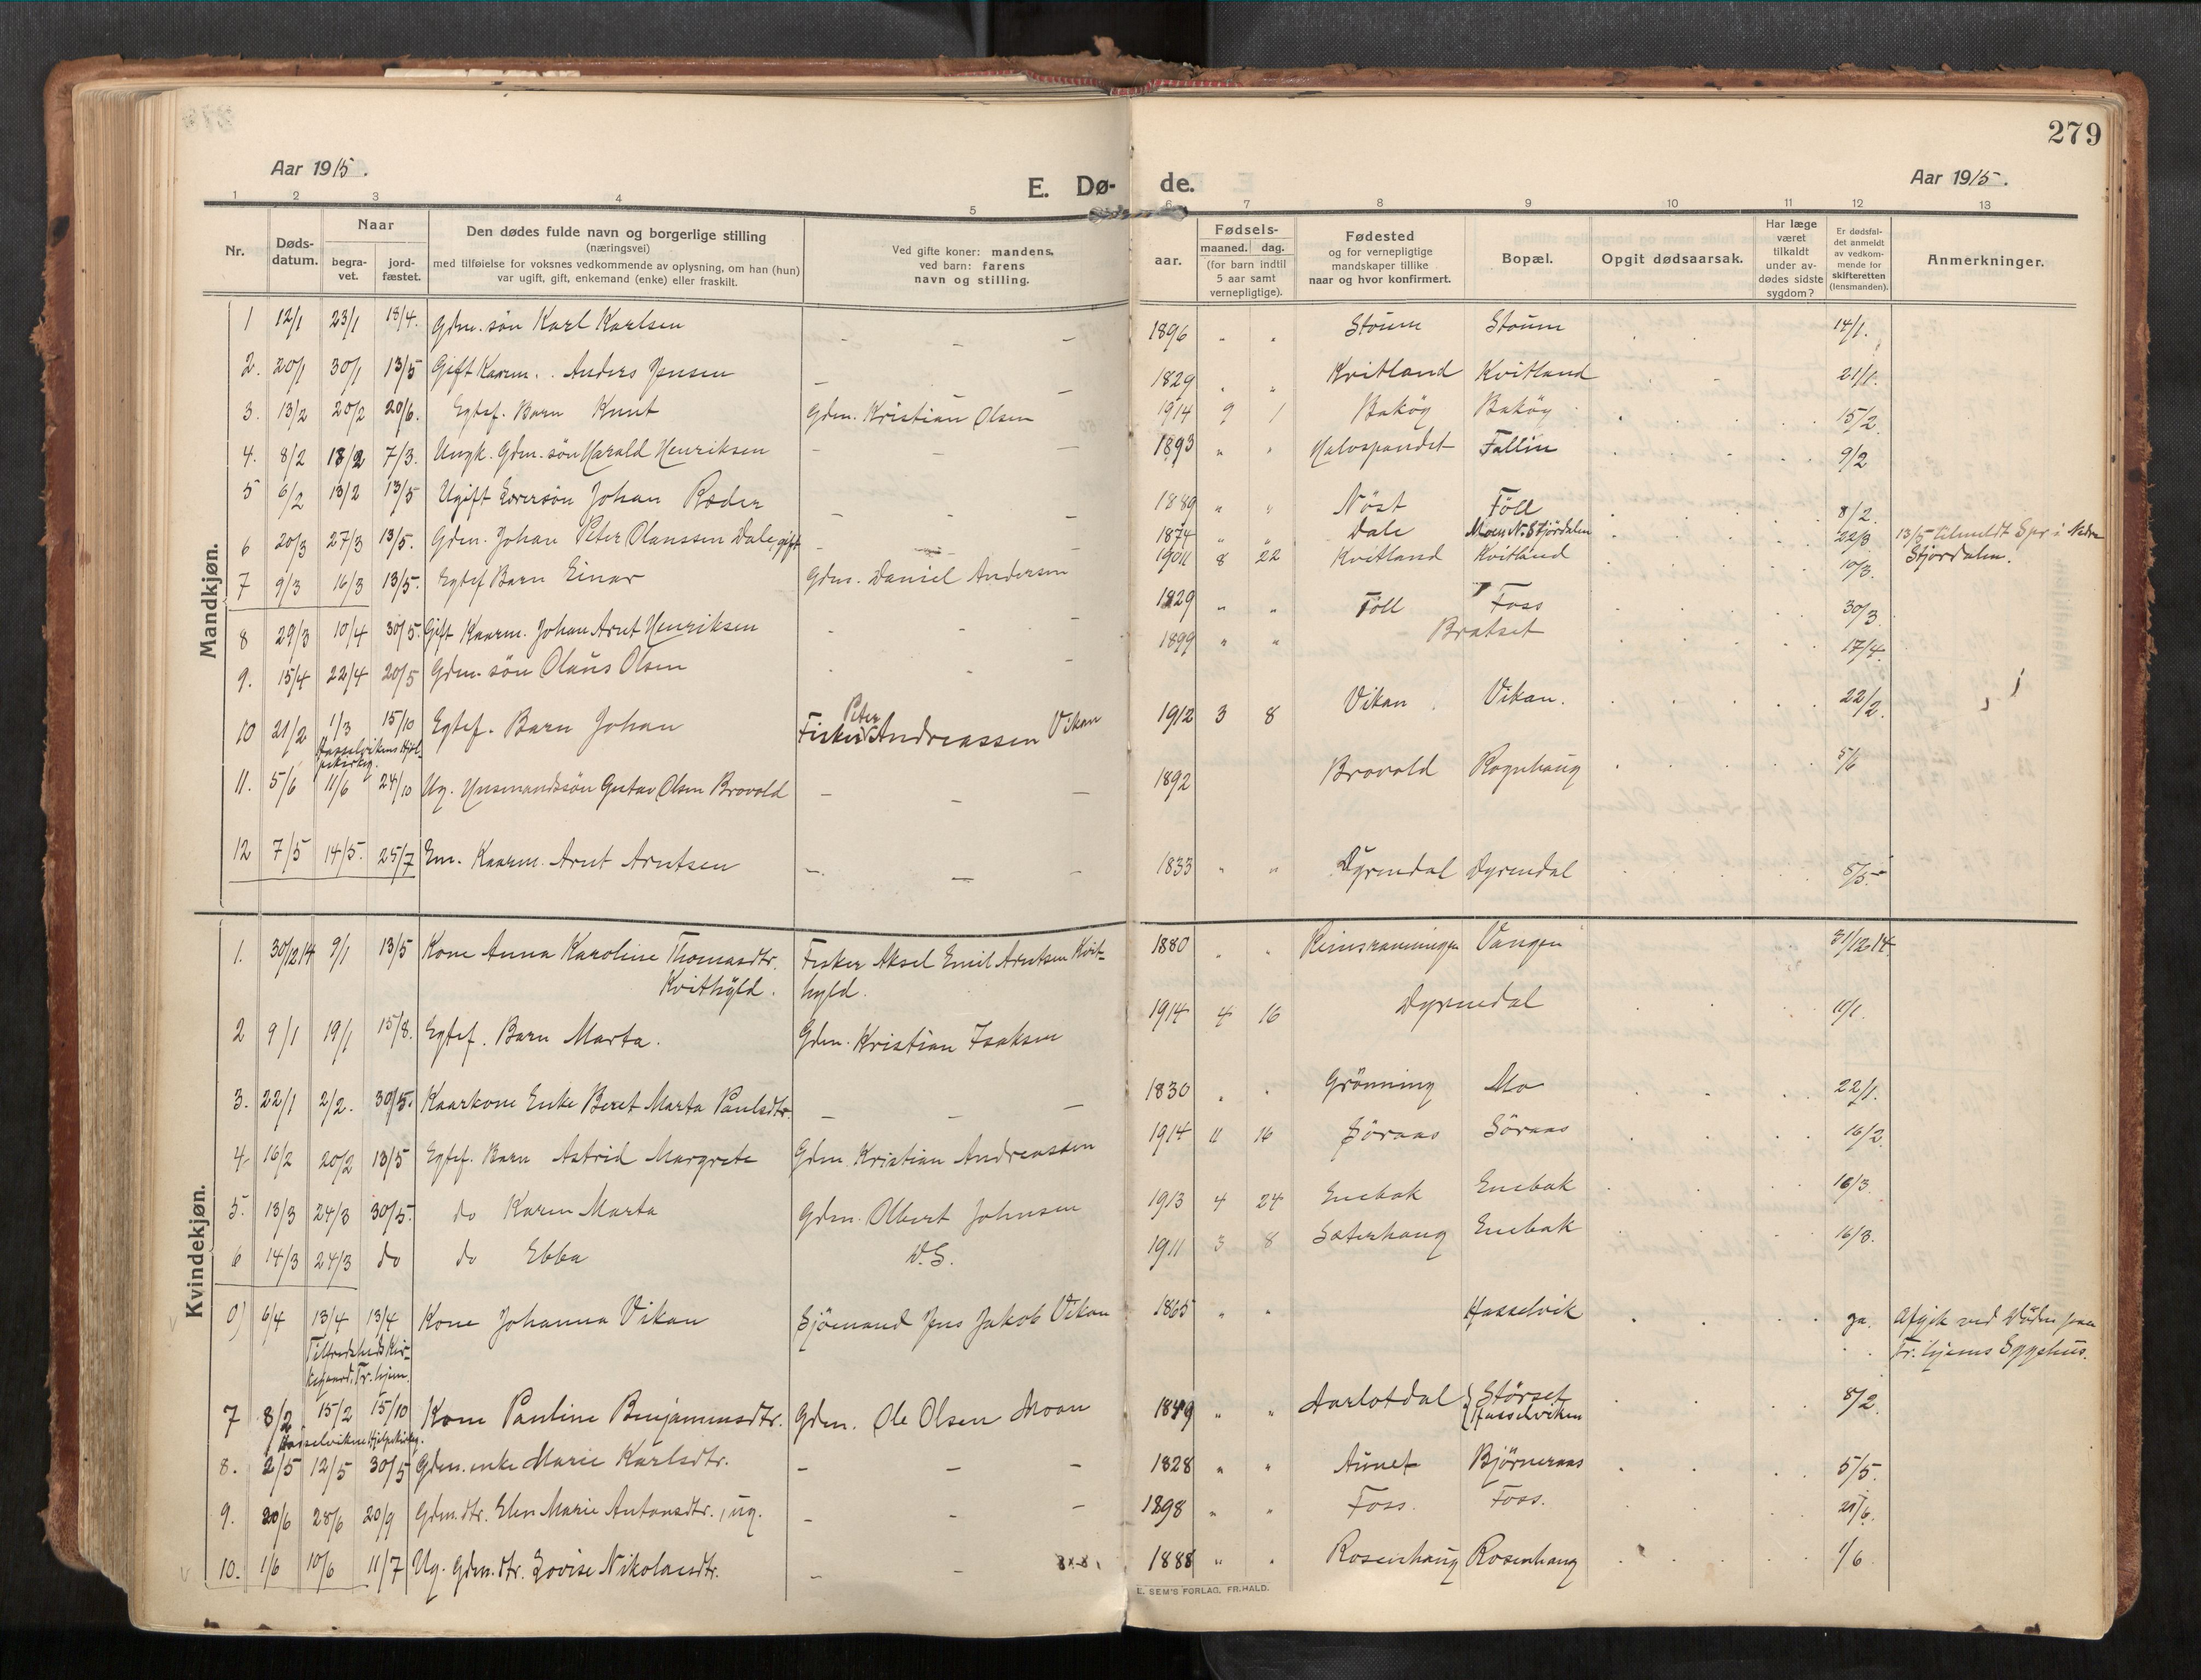 279
Aar 1915.
E. Dø- de.
Aar 1915.
1 2 3 4 5 6 7 8 9 10 11 12 13
Nr.
Døds-
datum.
Naar
begra-
vet.
jord-
fæstet.
Den dødes fulde navn og borgerlige stilling
(næringsvei)
med tilføielse for voksnes vedkommende av oplysning, om han (hun)
var ugift, gift, enkemand (enke) eller fraskilt.
Ved gifte koner: mandens,
ved barn: farens
navn og stilling.
Fødsels-
aar. maaned. dag.
(for barn indtil
5 aar samt
vernepligtige).
Fødested
og for vernepligtige
mandskaper tillike
naar og hvor konfirmert.
Bopæl.
Opgit dødsaarsak.
Har læge
været
tilkaldt
under av-
dødes sidste
sygdom?
Er dødsfal-
det anmeldt
av vedkom-
mende for
skifteretten
(lensmanden).
Anmerkninger.
Mandkjøn.
1 12/1 23/1 18/4. Gdm. søn Karl Karlsen - - - 1896 " " Stoum Stoum 14/1.
2. 20/1 30/1 13/5 Gift Kaarm. Anders Jensen - - 1829 " " Kvitland Kvitland 21/1.
3. 13/2 20/2 20/6. Egtef. Barn Knut Gdm. Kristian Olsen 1914 9 1 Bakøy Bakøy 15/2.
4. 8/2 18/2 7/3. Ungk. Gdm. søn Harald Henriksen - - - 1893 " " Fallin 9/2
5 6/2 13/2 13/5 Ugift Johan Røder - - - 1889 " " Nöst Föll 8/2.
6 20/3 27/3 13/5. Gdm. Johan Peter Olanssen Dale, gift - - - 1874 " " Dale Moen N. Stjördalen 22/3. 13/5 tilmeldt Spr. i Nedre
Stjordalen.
7 9/3 16/3 13/5. Egtef Barn Einar Gdm. Daniel Andersen 8 22 Kvitland Kvitland 10/3.
8 29/3 10/4 30/5. Gift Kaarm. Johan Arnt Henriksen - - - 1829 " " Föll Foss 30/3.
9. 15/4 22/4 20/5 Gdm. søn Olaus Olsen - - - 1899 " " Bratset 17/4.
10 21/2 1/3 15/10 Egtef. Barn Johan Fisker Peter Andreassen Vikan 1912 3 8 Vikan Vikan. 22/2.
11. 5/6 11/6 24/10 Ug. Husmandssøn Gustav Olsen Brovold - - - 1892 Brovold Rognhaug 5/6
12 7/5 14/5. 25/7 Em. Kaarm. Arnt Arntsen - - - 1833 " " Dyrendal Dyrendal 8/5.
Kvindekjøn.
1. 30/12 14 9/1 13/5 Kone Anna Karoline Thomasdtr. Fisker Aksel Emil Arntsen Kvit- 1880 " " Vangen 31/12 14.
Kvithyld. hyld.
2 9/1 19/1 15/8. Egtef. Barn Marta. Gdm. Kristian Isaksen 1914 4 16 Dyrendal 11/1.
3. 22/1 2/2. 30/5. Kaarkone Enke Beret Marta Paulsdtr. - - - 1830 " " Grönning Mo 22/1.
4. 16/2 20/2 13/5 Egtef. Barn Astrid Margrete Gdm. Kristian Andreassen 1914 11 16 Söraas Söraas 16/2.
5. 13/3 24/3 30/5. do Karen Marta Gdm. Olbert Johnsen 1913 4 24 Enebak Enebak 16/3.
6 14/3 24/3 do do Ebba D.S. 1911 3 8 Sæterhaug Enebak 16/3.
0) 6/4 13/4 13/4 Kone Johanna Vikan Sjömand Jens Jakob Vikan 1865 " " Hasselvik ja. Afgik ved Döden paa
Tr.hjems Sygehus.
7 8/2 15/2 15/10 Kone Pauline Benjaminsdtr. Gdm. Ole Olsen Moan 1849 " " Aarlotdal Störset 8/2.
Hasselviken
8. 2/5 12/5 30/5 Gdm. enke Marie Karlsdtr. - - - 1828 " " Aunet Bjørneraas 5/5.
9. 20/6 28/6 20/9 Gdm. dtr. Elen Marie Antonsdtr., ug. - - - 1898 " " Foss. Foss. 21/6.
10. 1/6 10/6 11/7 Ug. Gdm. dtr. Lovise Nikolaisdtr. - - 1888 " " Rosenhaug Rosenhaug 1/6
E. SEM'S FORLAG, FR.HALD.